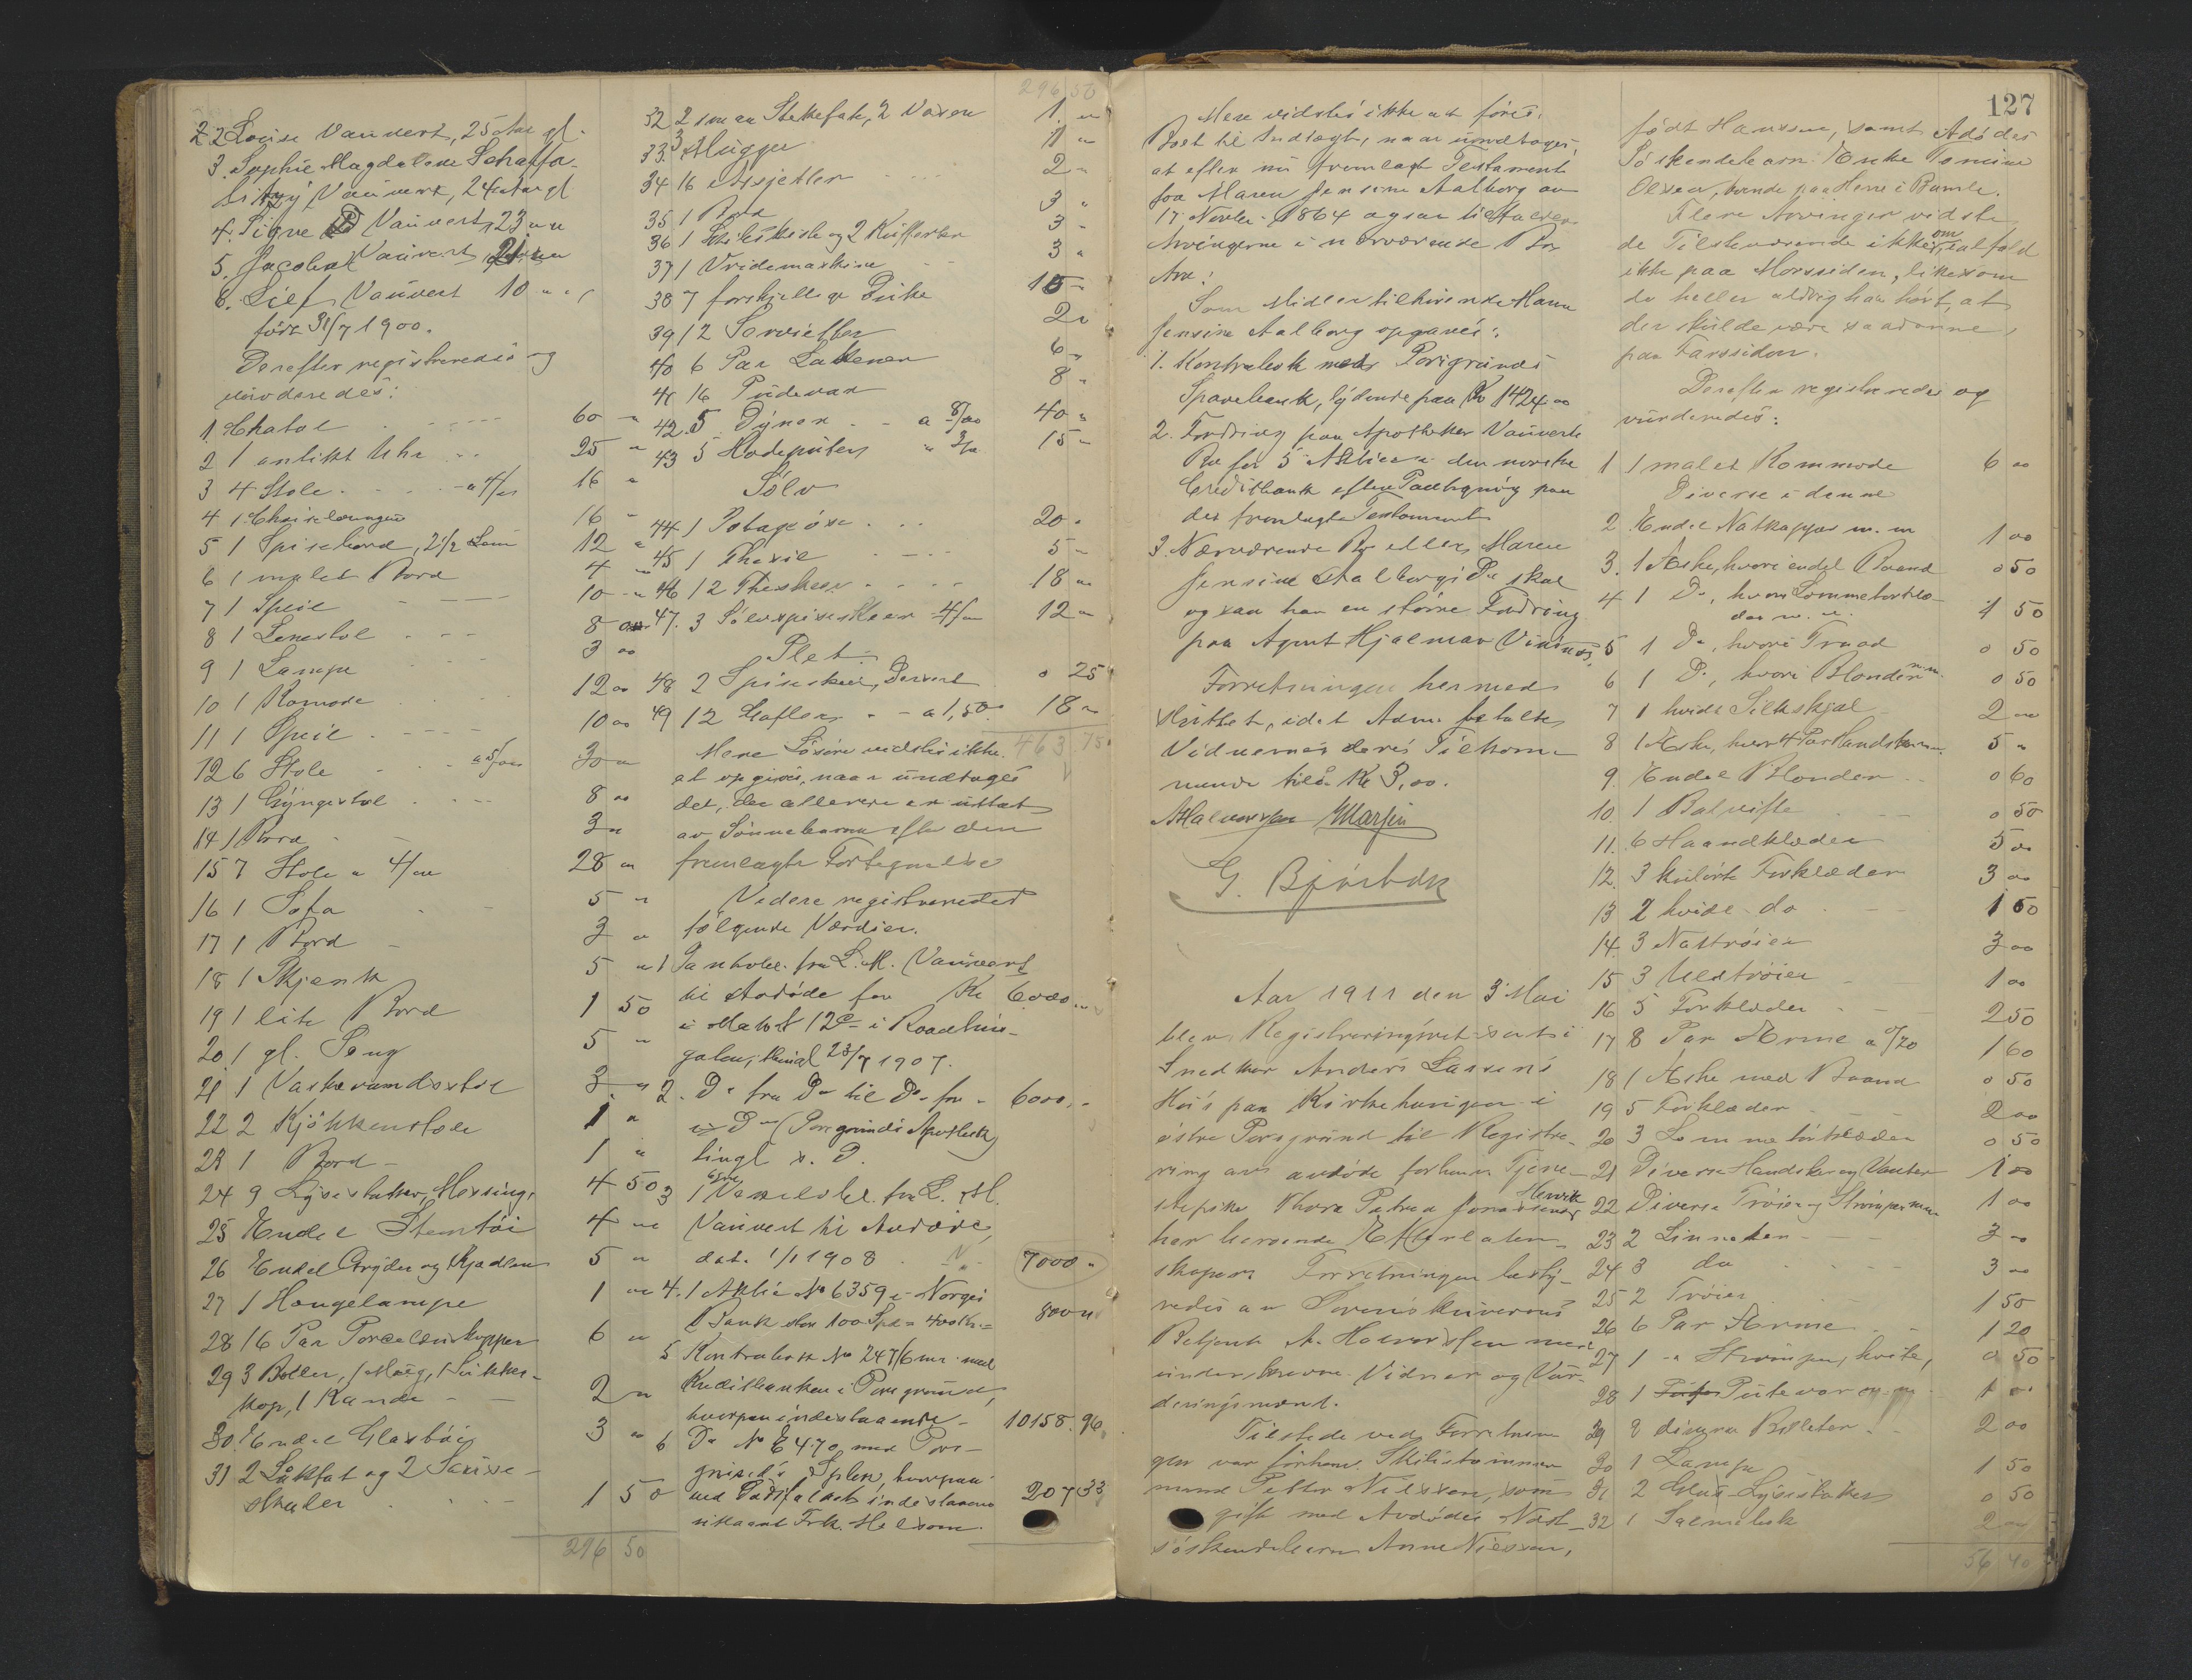 2 Louise Vauvert, 25 Aar gl.
3. Sophie Magdalene Schaffa-
litzky Vauvert, 24 Aar gl
4. Signe D Vauvert, 23 " "
5. Jacobal Vauvert, 21
6. Lief Vauvert 10 " "
født 31/7 1900.
Derefter registreredes og
vurderedes:
1. Chatol 60 "
2 1 antikt Uhr 25 "
3 4 Stole a 4/00 16 "
4 1 Chaiselongue 16 "
5 1 Spisebord, 2 1/2 Lem 12 "
6 1 malet Bord 4 "
7 1 Speil 10 "
8 1 Lenestol 8 00
9 1 Lampe 3 00
10 1 Komode 12 00
11 1 Speil 10 00
12 6 Stole a 5/00 30 "
13 1 Gyngestol 8 00
14 1 Bord 3 "
15 7 Stole a 4/00 28 "
16 1 Sofa 5 "
17 1 Bord 3 "
18 1 Skjenk 5 "
19 1 lite Bord 1 50
20 1 gl. Seng 5 "
21 1 Vaskevandsstol 3 "
22 2 Kjøkkenstole 1 "
23 1 Bord 1 "
24 9 Lysestaker, Messing, 4 50
25 Endel Stentøi 4 "
26 Endel Gryder og Kjedler 5 "
27 1 Hængelampe 1 "
28 16 Par Porcelænskopper 6 "
29 3 Boller, 1 Mug, 1 Sukker-
kop, 1 Kande 2 "
30. Endel Glastøi 3 "
31 2 Låkfat og 2 Sause-
skaaler 1 50
296 50
296 50
32 2 smaa Stekefat, 2 Vaser 1. "
33. 3 Mugger 1 "
34 16 Assjetter 2 "
35 1 Bord 3 "
36 1 og 2 Kufferter 3 "
37 1 Vridemaskine 3 "
38 7 forskjellige Duke 15 "
39 12 Servietter 2 "
40 6 Par Lakener 6 "
41 16 Pudevar 8 "
42. 5 Dyner a 8/00 40 "
43 5 Hodeputer " 3/00 15 "
Sølv
44 1 Potageøse 20 "
45 1 Thesil 5 "
46 12 Theskeer 18 "
47. 3 Sølvspiseskeer 4/00 12 "
Plet.
48 2 Spiseskeer, Dessert 0 25
49 12 Gafler a 1,50 18 "
463.75
Mere Løsøre vidstes ikke
at opgives, naar undtages
det, der allerede er uttat
av Sønnebarna efter den
fremlagte Fortegnelse
Videre registreredes
følgende Værdier.
1 Panteobl. fra L. M. Vauvert
til Avdøde for Kr 6000 "
i Matr. No 120 i Raadhus-
gaten, thingl 23/7 1907.
2. Do fra Do til Do for 6000, "
i Do (Porsgrunds Apothek)
tingl s. D.
3 1 Vexelobl. fra L. M.
Vauvert til Avdøde,
dat. 1/1 1908 7000 "
4. 1 Aktie No 6359 i Norges
Bank stor 100 Spd = 400 Kr = 800 "
5 Kontrabok No 247/6 mr. med
Kreditbanken i Porsgrund,
hvorpaa indestaaende 10158. 96
6 Do No E 470 med Pors-
grund's Splen, hvorpaa
ved indestaaende 207 33
Frk. Helsom.
Mere vidstes ikke at føres
Boet til Indtægt, naar undtages,
at efter nu fremlagt Testament
fra Maren Jensine Aalborg av
17 Novbr. 1864 ogsaa tilfalder
Arvingerne i nærværende Bo
Arv.
Som Midler tilhørende Maren
Jensine Aalborg opgaves:
1. Kontrabok med Porsgrunds
Sparebank, lydende paa Kr 1424 00
2. Fordring paa Apotheker Vauverts
Bo for 5 Aktier i den norske
Creditbank efter Paategning paa
det fremlagte Testament
3. Nærværende Bo eller Maren
Jensine Aalborgs Do skal
ogsaa ha en større Fordring
paa Agent Hjalmar
Forretningen hermed
sluttet, idet Adm. fortalte
Vidnernes deres Tilkom-
mende tils. Kr 3,00.
AHalvorsen
G. Bjørbæk
Aar 1911 den 3 Mai
blev Registreringsret sat i
Snedker Anders Larsens
Hus paa Kirkehaugen i
østre Porsgrund til Registre-
ring av avdøde forhenv. Tjene-
stepike Thora Petrea Jonassens
her beroende Efterlaten-
skaper. Forretningen besty-
redes av Sorenskriverens
Betjent A. Halvorsen med
underskrevne Vidner og Vur-
deringsmænd.
Tilstede ved Forretnin-
gen var forhenv. Skibstømmer-
mand Petter Nielsen, som
gift med Avdødes
søskendebarn Anne Nielsen,
127
født Hansen, samt Avdødes
Søskendebarn Enke Tomine
Olsen, boende paa Herre i Bamle.
Flere Arvinger vidste
de Tilstedeværende ikke om, ialfald
ikke paa Morssiden, likesom
de heller aldrig har hørt, at
der skulde være saadanne,
paa Farssiden.
Derefter registreredes og
vurderedes:
1 1 malet Kommode 6 00
Diverse i denne
2. Endel Natkapper m. m 1 00
3. 1 Æske, hvori endel Baand 0 50
4 1 Do, hvori Lommetørklæ-
der m. m. 1 50
5 1 Do, hvori Traad 0 50
6 1 Do, hvori Blonder m.m. 0 50
7 1 hvidt Silkeskjal 2 00
8 1 Æske, hvori 4 Par Handsker m.m. 5 "
9. Endel Blonder 0 60
10. 1 Balvifte 0 50
11. 6 Haandklæder 5 00
12. 3 kulørte Forklæder 3 00
13 2 hvide do 1 50
14. 3 Nattrøier 3 00
15 3 Uldtrøier 1 00
16 5 Forklæder 2 50
17 8 Par Ærme a 0/20 1 60
18 1 Æske med Baand 0 50
19 5 Forklæder 2 00
20 3 Lommetørklæder 0 50
21 Diverse Handsker og Vanter 1 00
22 Diverse Trøier og Strømper m.m. 1 00
23 2 Linneter 3 00
24 3 do 3 00
25 2 Trøier 1 50
26 6 Par Ærme 1 20
27 1 " Strømper, hvite, 0 50
28 1 Putevar 1 00
29 8 diverse Billeter 2 00
30 1 Lampe 1 50
31 2 Glas-Lysestaker 0 50
32 1 Salmebok 2 00
56 40